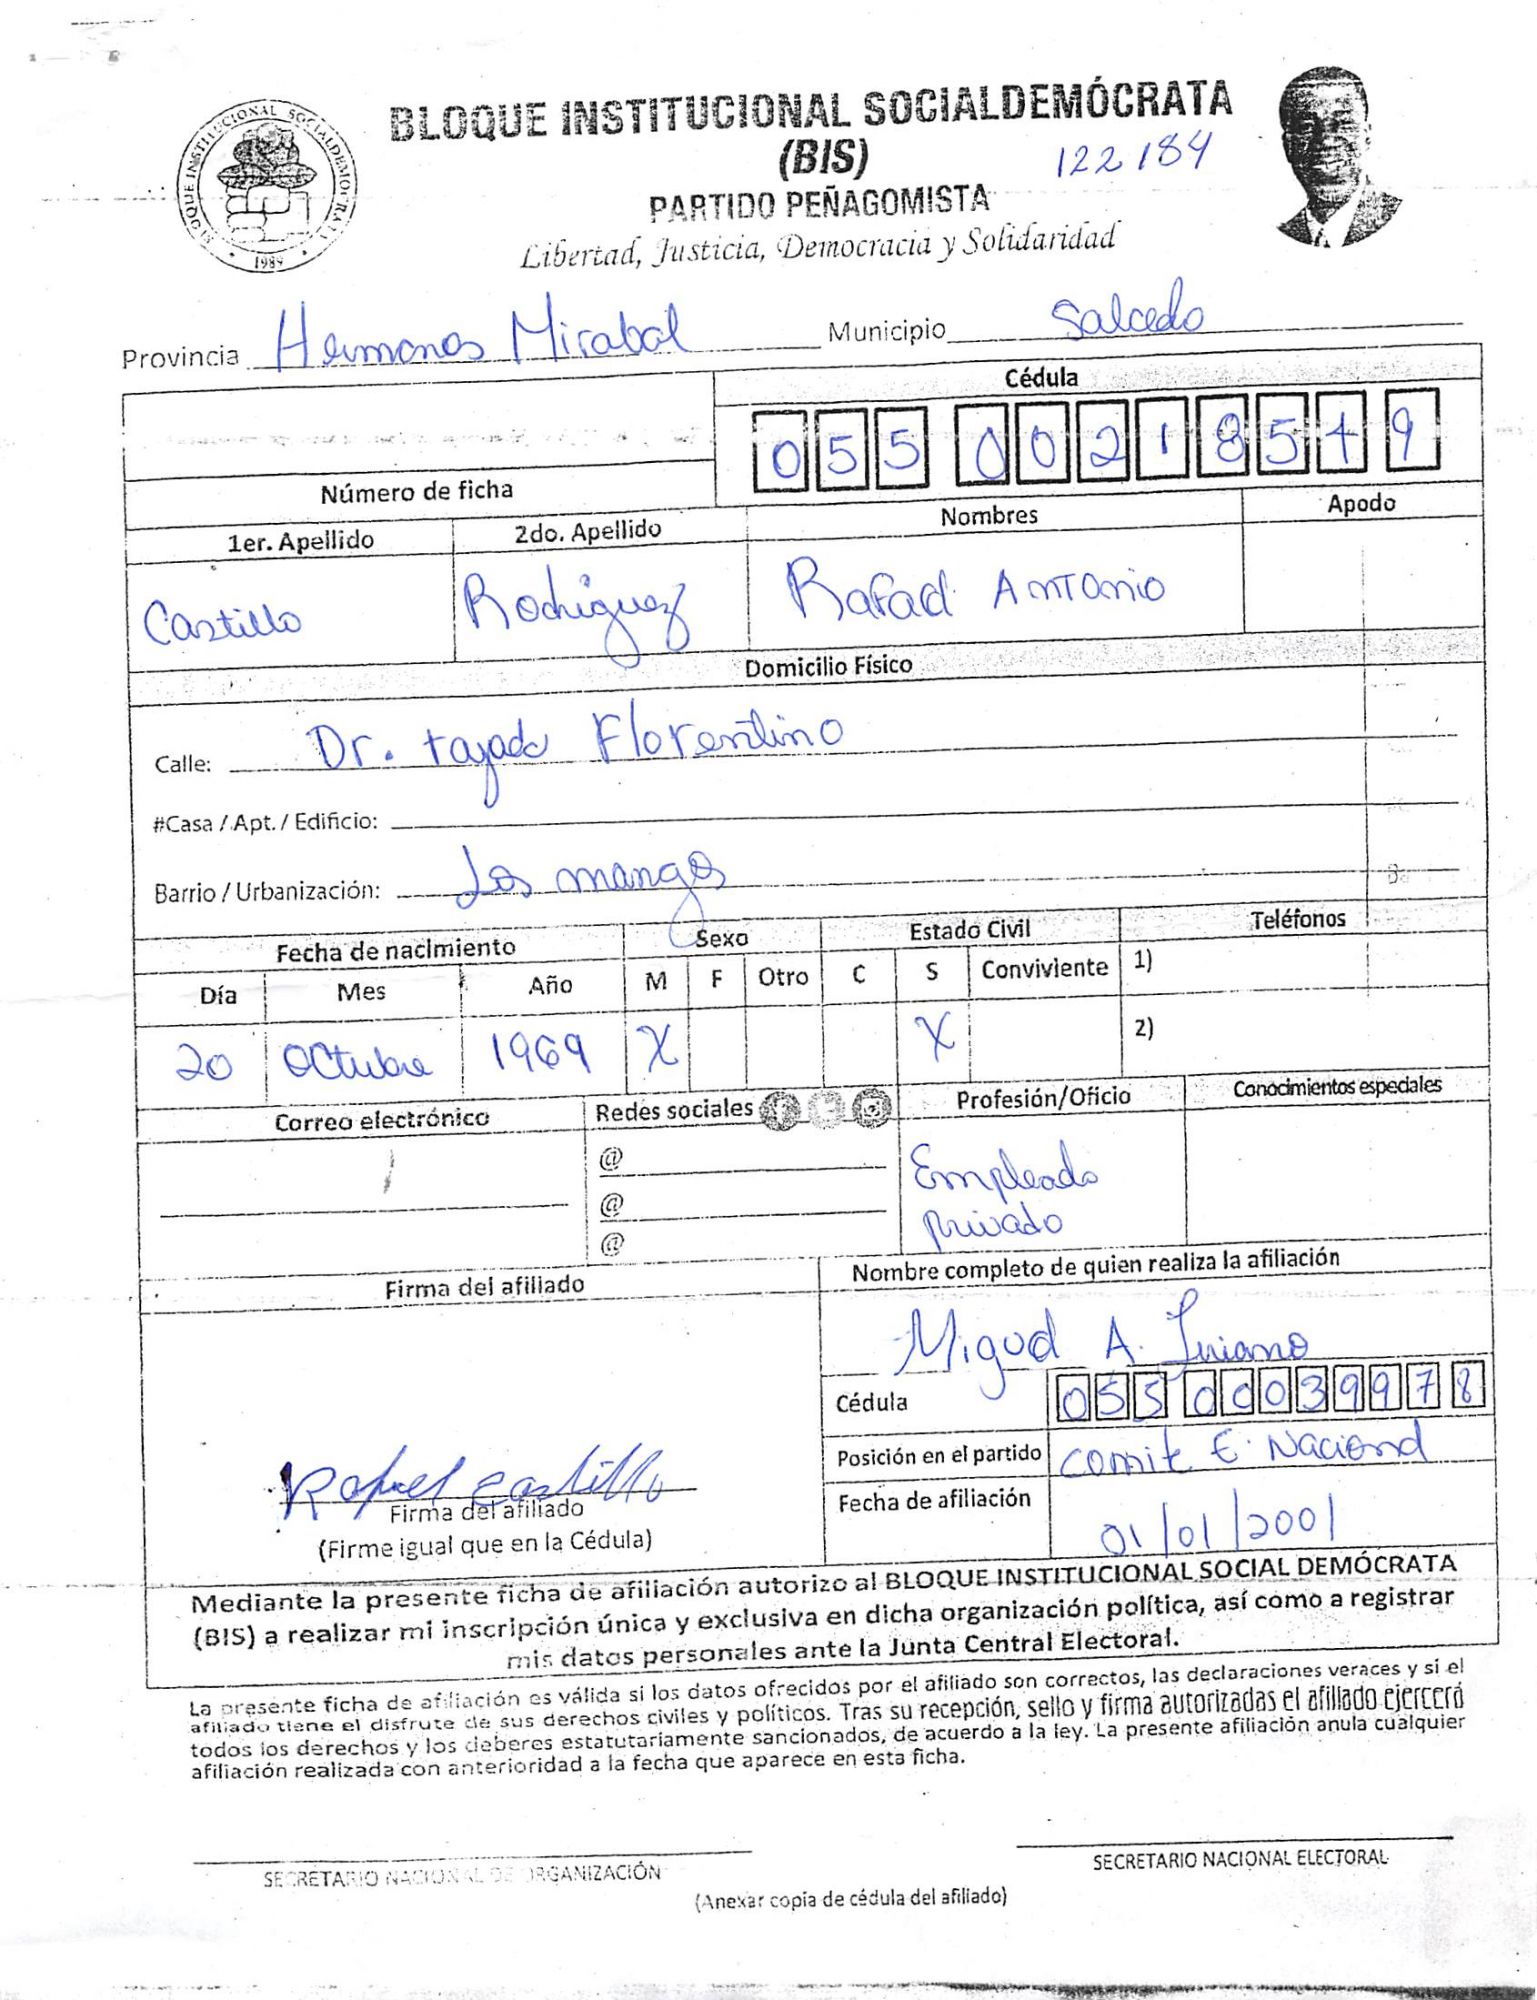 BLOQUE INSTITUCIONAL SOCIALDEMÓCRATA
(BIS)
122184
PARTIDO PEÑAGOMISTA
Libertad, Justicia, Democracia y Solidaridad
BLOQUE INSTITUCIONAL SOCIALDEMOCRATA
1989
Provincia Hermanas Mirabal Municipio Salcedo
Cédula
055 0021854 9
Número de ficha
1er. Apellido 2do. Apellido Nombres Apodo
Castillo Rodriguez Rafael Antonio
Domicilio Físico
Calle: Dr. Florentino
#Casa / Apt. / Edificio:
Barrio / Urbanización: Los mangos
Fecha de nacimiento Sexo Estado Civil Teléfonos
Día Mes Año M F Otro C S Conviviente 1)
20 Octubre 1969 X X 2)
Correo electrónico Redes sociales Profesión/Oficio Conocimientos especiales
@
@
@
Empleado
privado
Firma del afiliado Nombre completo de quien realiza la afiliación
Miguel A.
Cédula 055 0003997 8
Posición en el partido Comite E. Nacional
Fecha de afiliación 01/01/2001
Rafael Castillo
Firma del afiliado
(Firme igual que en la Cédula)
Mediante la presente ficha de afiliación autorizo al BLOQUE INSTITUCIONAL SOCIAL DEMÓCRATA
(BIS) a realizar mi inscripción única y exclusiva en dicha organización política, así como a registrar
mis datos personales ante la Junta Central Electoral.
La presente ficha de afiliación es válida si los datos ofrecidos por el afiliado son correctos, las declaraciones veraces y si el
afiliado tiene el disfrute de sus derechos civiles y políticos. Tras su recepción, sello y firma autorizadas el afiliado ejercerá
todos los derechos y los deberes estatutariamente sancionados, de acuerdo a la ley. La presente afiliación anula cualquier
afiliación realizada con anterioridad a la fecha que aparece en esta ficha.
SECRETARIO NACIONAL DE ORGANIZACIÓN SECRETARIO NACIONAL ELECTORAL
(Anexar copia de cédula del afiliado)